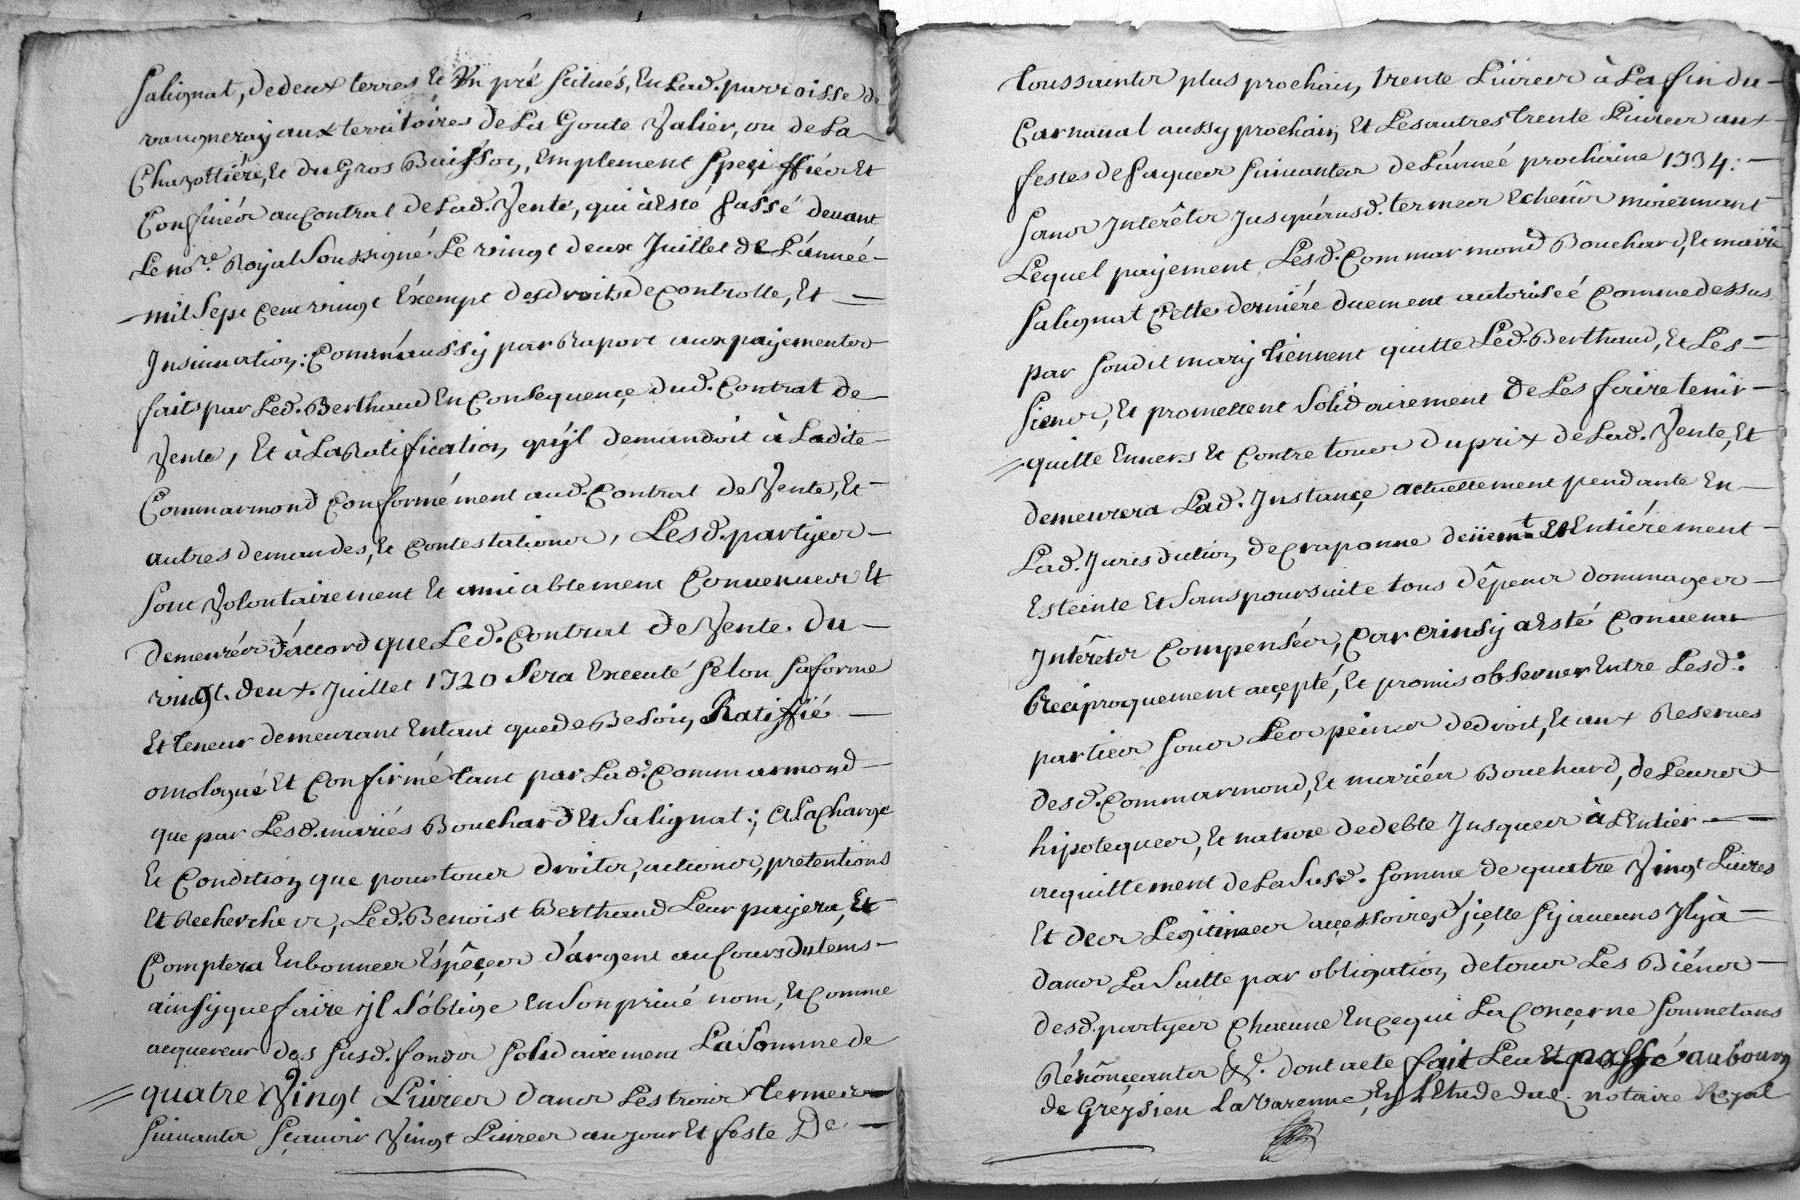 Salignat, de deux terres et Un pré scitués, En Lad. parroisse de
vaugneray aux territoires de La Goute Valier, ou de La
Chazottiére, et du Gros Buisson, Emplement Speçiffiés Et
Confinés au Contrat de Lad. Vente, qui à Esté passé devant
Le nore. Royal Soussigné Le vingt deux Juillet de L'année
mil Sept Cent vingt Éxempt des droits de Controlle, Et
Insinuation; Comme aussy par Raport aux payements
faits par Led. Berthaud En Consequençe dud. Contrat de
Vente, Et à La Ratification qu'jl demandoit à Ladite
Commarmond Conformément aud. Contrat de Vente, Et
autres demandes, et Contestations, Lesd. partyes
Sont Volontairement Et amiablement Convenues Et
demeurées d'accord que Led. Contrat de Vente du
vingt deux Juillet 1720 Sera Executé Selon Sa forme
Et teneur demeurant Entant que de Besoin Ratiffié
omologué Et Confirmé tant par Lad. Commarmond
que par Lesd. mariés Bouchard Et Salignat; A La Charge
Et Condition que pour tous droits, actions, prétentions
Et Recherches, Led. Benoist Berthaud Leur payera, Et
Comptera En bonnes Éspêçes d'argent au Cours du tems
ainsy que faire jl S'oblige En Son privé nom, Et Comme
acquereur des Susd. fonds Solidairement La Somme de
quatre Vingt Livres dans Les trois termes
Suivants Sçavoir Vingt Livres au jour Et feste De
toussaints plus prochain, trente Livres à La fin du
Carnaval aussy prochain, Et Les autres trente Livres aux
festes de Paques Suivantes de L'année prochaine 1734.
Sans Interêts Jusqu'éxusd. termes Echeûs moiennant
Lequel payement Lesd. Commarmond Bouchard, Et marie
Salignat Cette derniére duement autoriseé Comme dessus
par Sondit mary tiennent quitte Led. Berthaud, Et Les
Siens, Et promettent Solidairement de Les faire tenir
quitte Envers Et Contre tous du prix de Lad. Vente, Et
demeurera Lad. Instançe actuellement pendante En
Lad. Jurisdiction de Craponne deüemt. Et Entiérement
Esteinte Et Sans poursuite tous dêpens dommages
Intêrêts Compensés, Car ainsy à Esté Convenu
Réciproquement açcepté, Et promis observer Entre Lesd.
parties Sous Les peines de droit, Et aux Reserves
desd. Commarmond, Et mariés Bouchard, de Leurs
hipoteques, Et nature de debte Jusques à L'Entier
acquittement de La Susd. Somme de quatre Vingt Livres
Et des Legitimes açcessoires, d'jçelle Sy aucuns Jl y à
dans La Suitte par obligation de tous Les Biéns
desd. partyes Chacune En Ce qui La Conçerne Soumetans
Rénônçeants &c. dont acte fait Leu Et passé au bourg
de Greysieu La Varenne, En L'Etude dud. notaire Royal